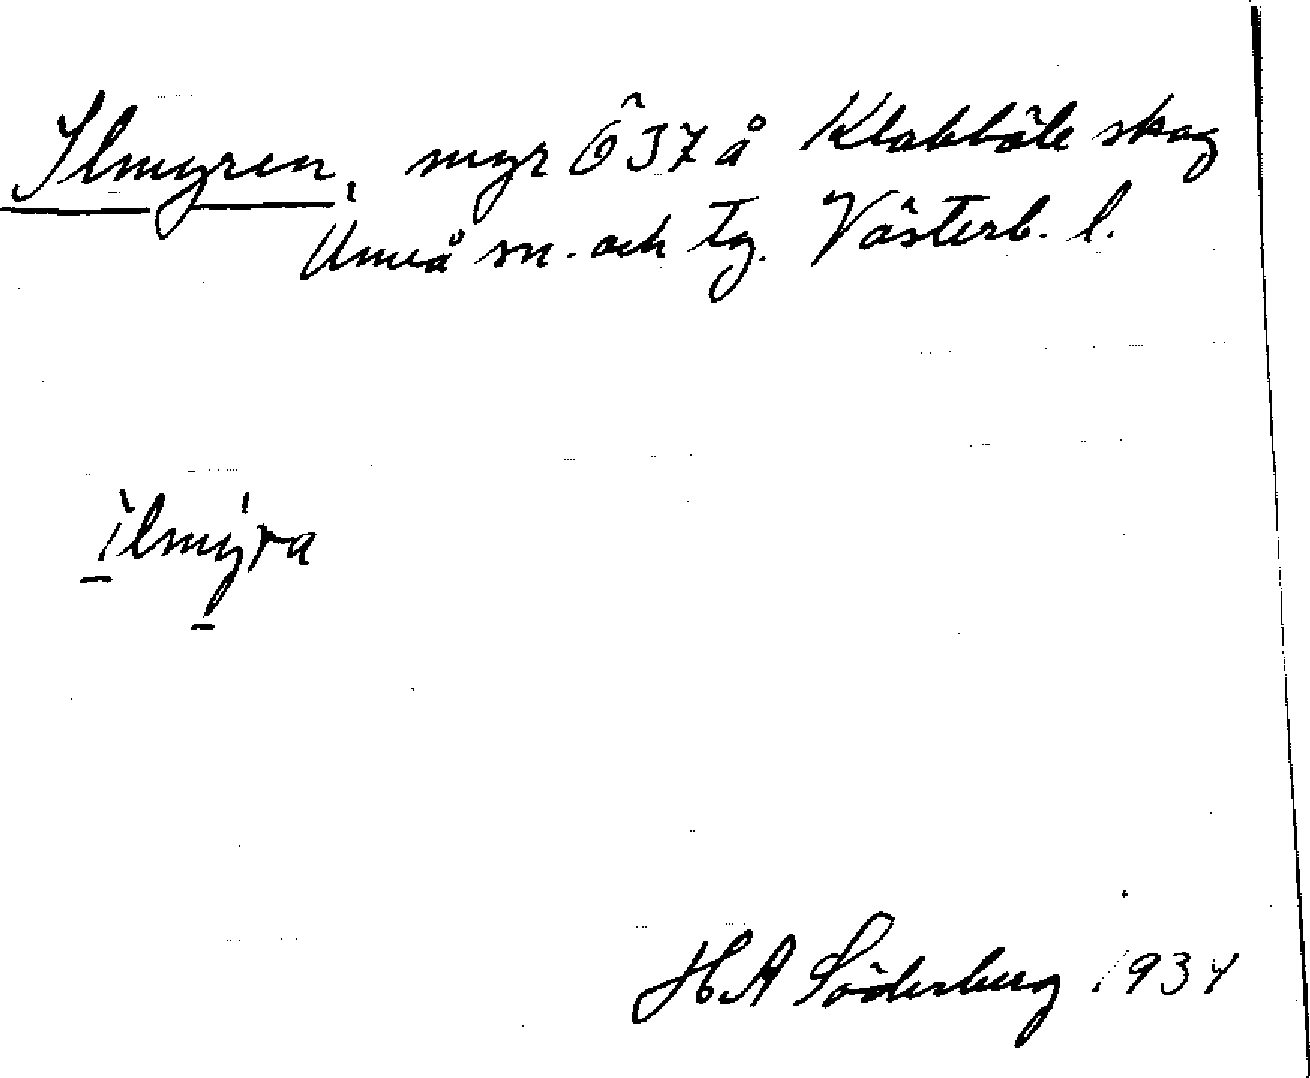 Ilmyren, myr Ö 37 å Klabböle skog
Umeå sn. och tg. Västerb. l.
ìlmýra
H A Söderberg 1934